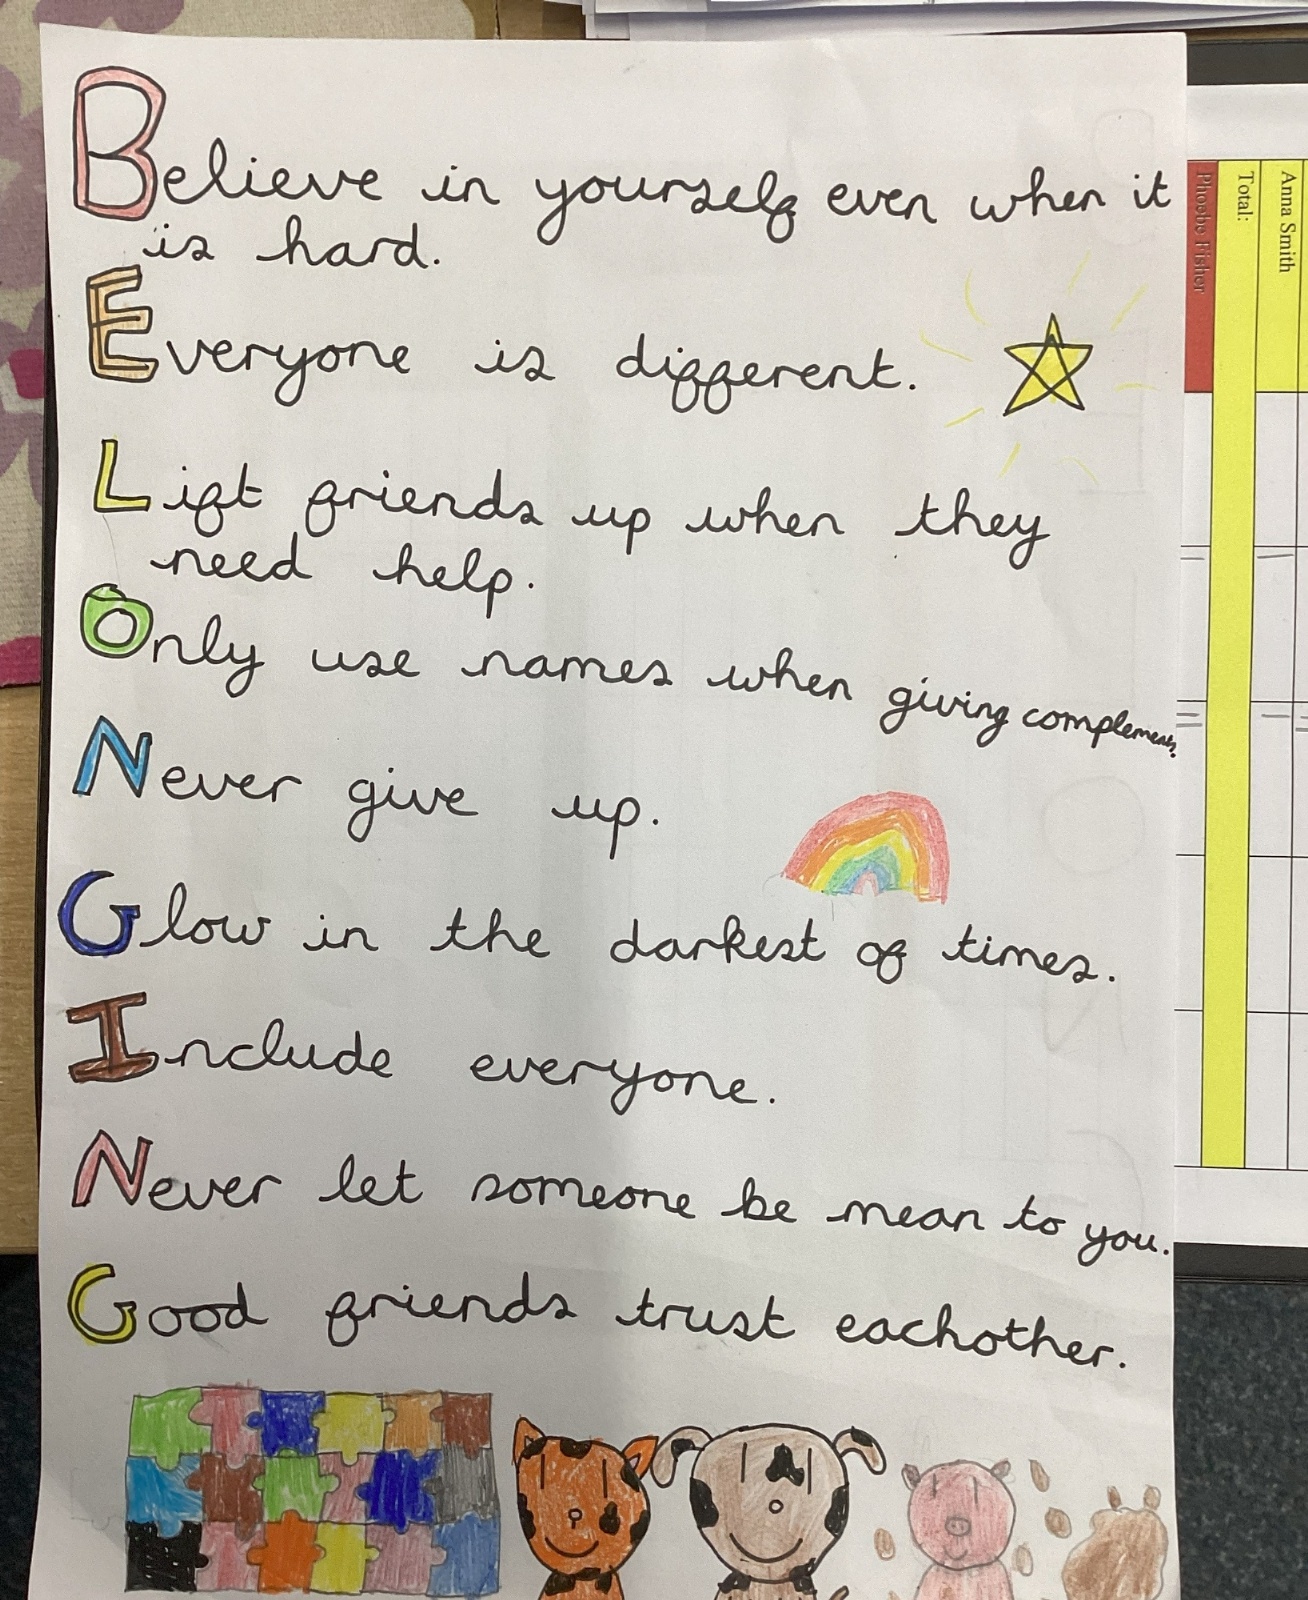 Believe in yourself even when it
is hard.
Everyone is different.
Lift friends up when they
need help.
Only use names when giving complements.
Never give up.
Glow in the darkest of times.
Include everyone.
Never let someone be mean to you.
Good friends trust eachother.
Phoebe Fisher
Total:
Anna Smith